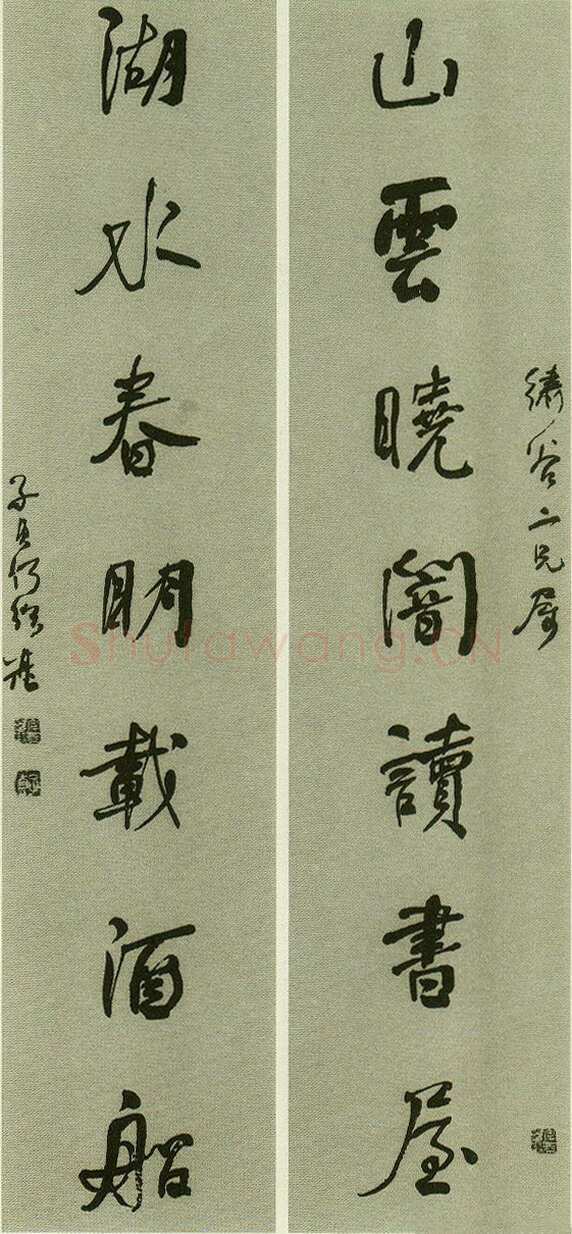 繡谷二兄屬
山雲曉闇讀書屋
湖水春明載酒船
子貞何紹基
Shufawang.CN